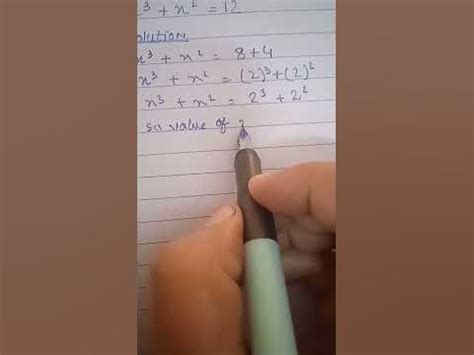 x³ + x² = 12
olution
x³ + x² = 8 + 4
x³ + x² = (2)³ + (2)²
x³ + x² = 2³ + 2²
so value of